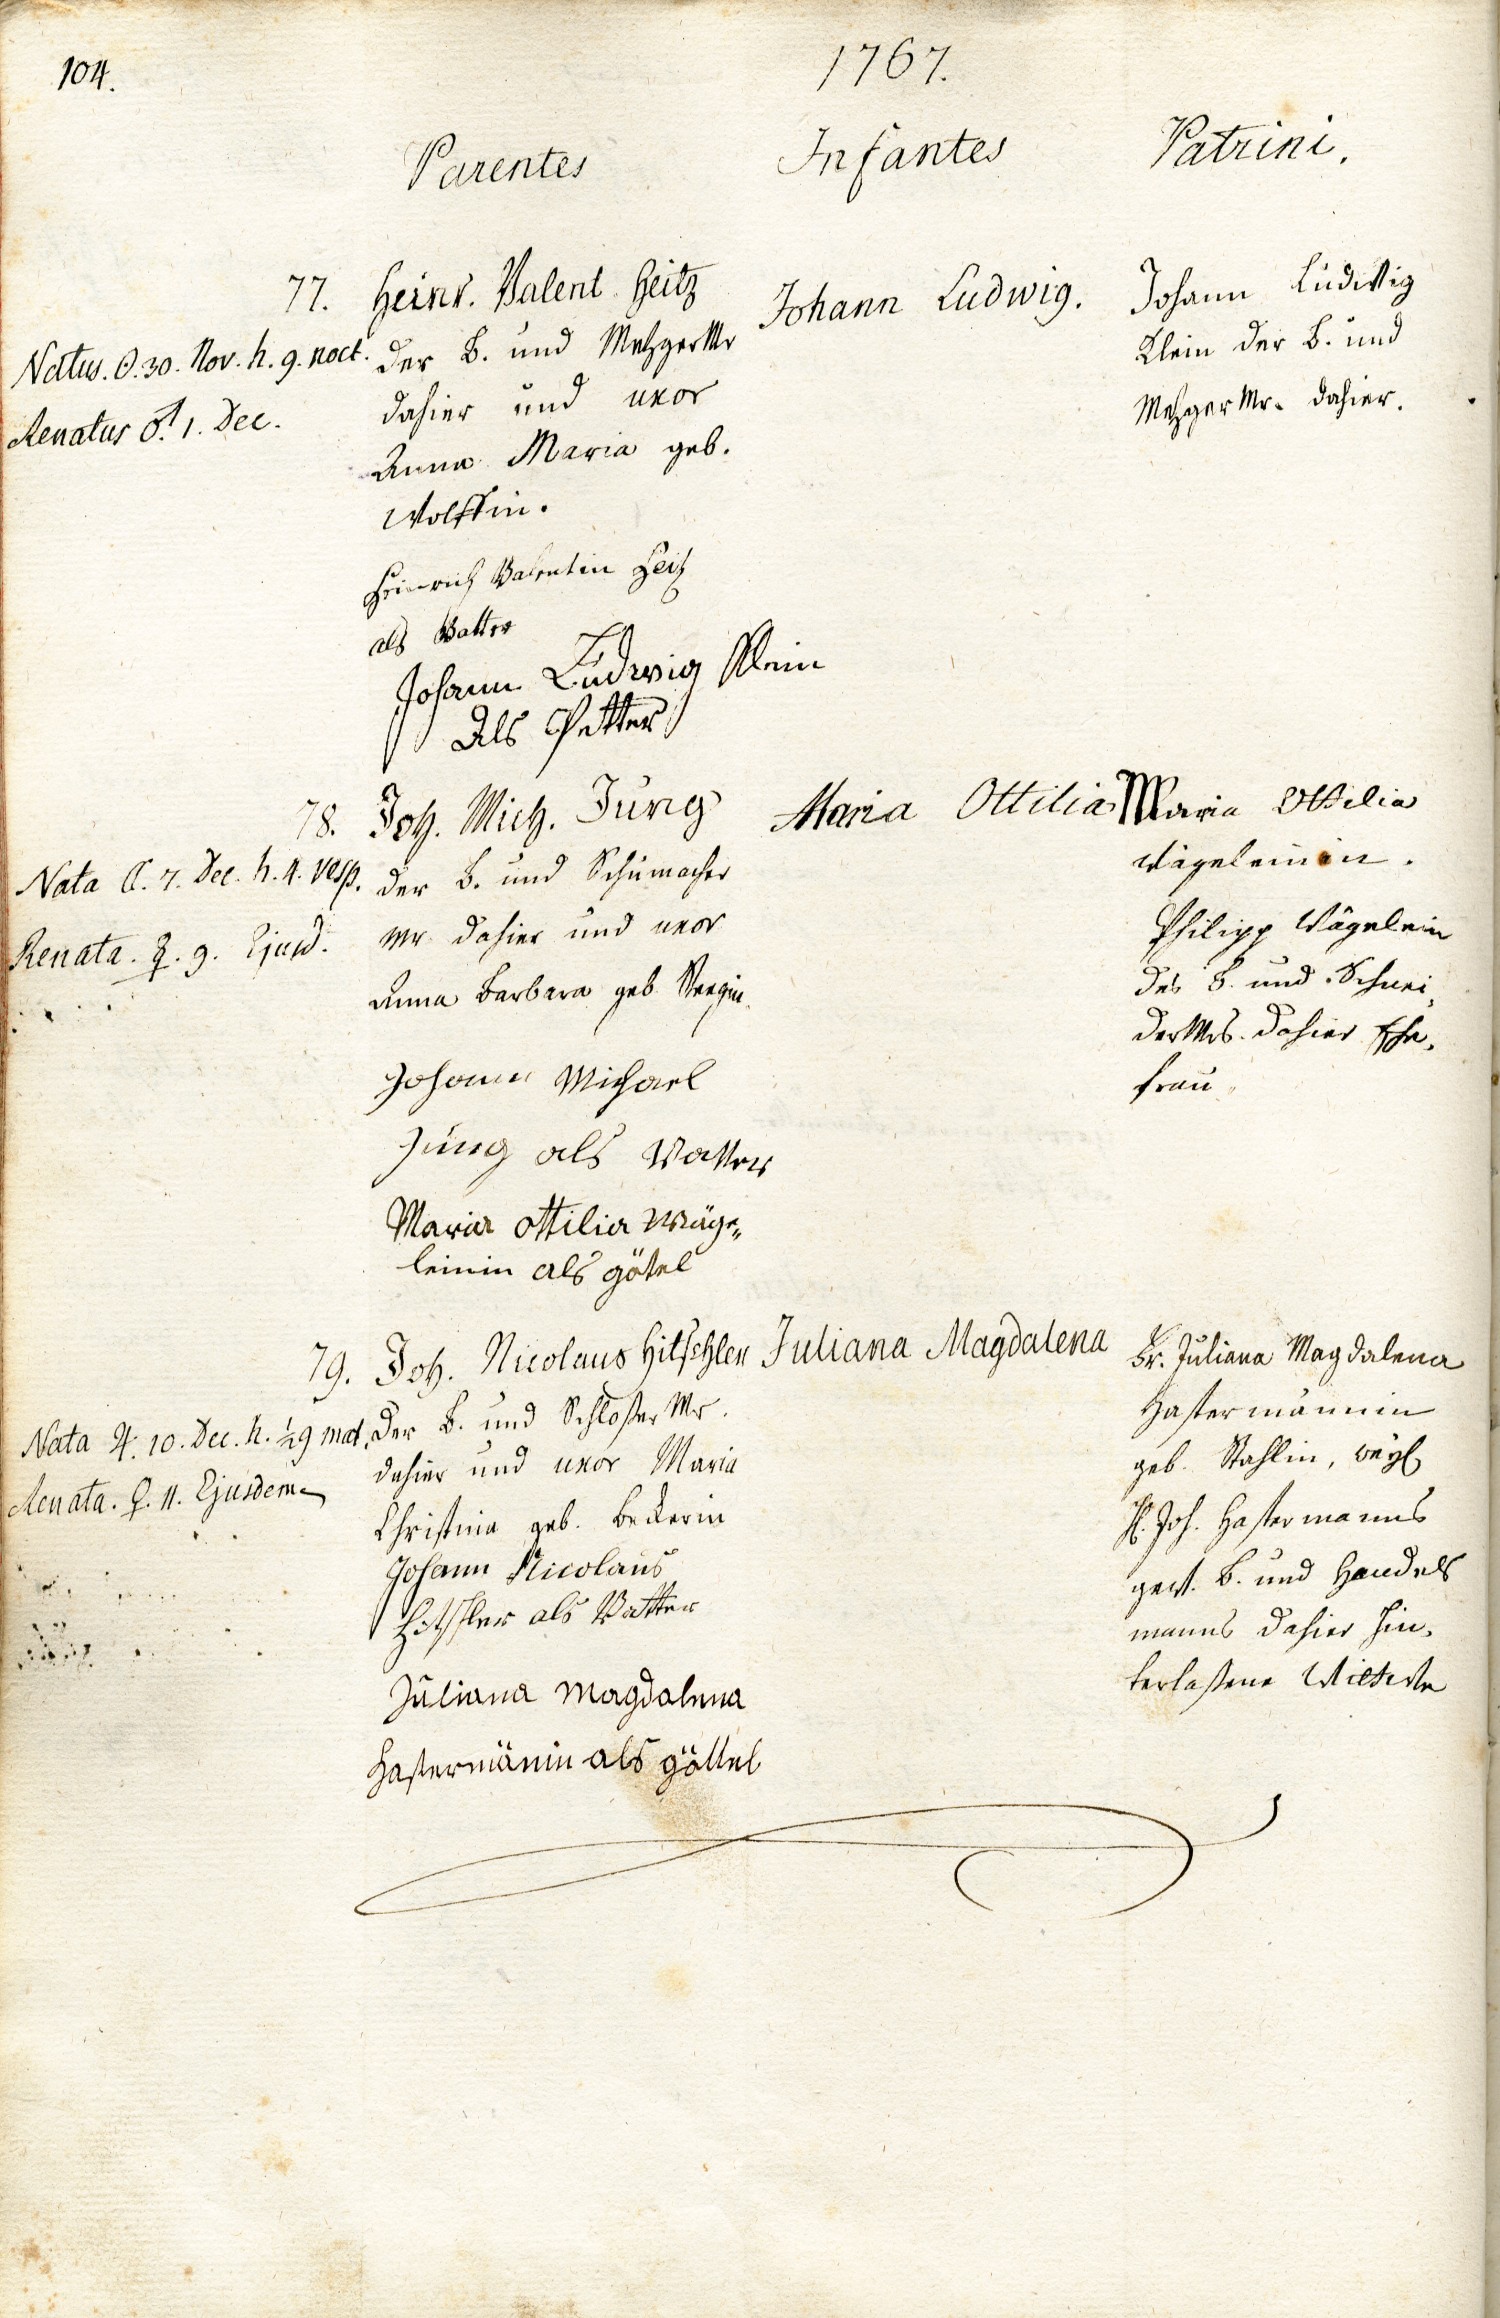 104.
1767.
Parentes
Infantes
Patrini.
77.
Natus. ☉. 30. Nov. h. 9. noct.
Renatus ♂. 1. Dec.
Heinr. Valent. Heitz
der B. und Metzger Mr
dahier und uxor
Anna Maria geb.
Wolffin.
Heinrich Valentin Heitz
als Vatter
Johann Ludwig Klein
Als Petter
Johann Ludwig.
Johann Ludwig
Klein der B. und
Metzger Mr. dahier.
78.
Nata ☾. 7. Dec. h. 4. vesp.
Renata. ☿. 9. Ejusd.
Joh. Mich. Jung
der B. und Schumacher
Mr dahier und uxor
Anna Barbara geb.
Johann Michael
Jung als Vatter
Maria Ottilia Wäge„
leinin als götel
Maria Ottilia
Maria Ottilia
Wägeleinin.
Philipp Wägelein
des B. und Schnei,
der Mrs. dahier Ehe,
frau
79.
Nata ♃. 10. Dec. h. ½9 mat.
Renata. ♀. 11. Ejusdem
Joh. Nicolaus Hitschler
der B. und Schloßer Mr.
dahier und uxor Maria
Christina geb. Beckerin
Johann Nicolaus
Hitschler als Vatter
Juliana Magdalena
Hastermänin als göttel
Juliana Magdalena
Fr. Juliana Magdalena
Hastermännin
geb. Stahlin, weyl
H. Joh. Hastermanns
gew. B. und Handels
manns dahier hin,
terlaßene Wittwe